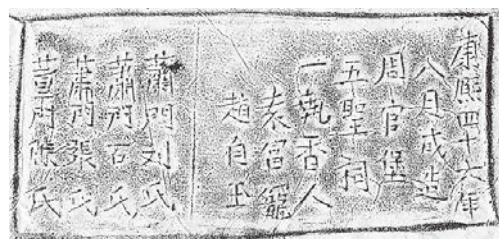 康熙四十六年
八月成造
周官堡
五聖祠
一執香人
袁留籠
趙自玉
蕭門刘氏
蕭門石氏
蕭門張氏
董門陳氏